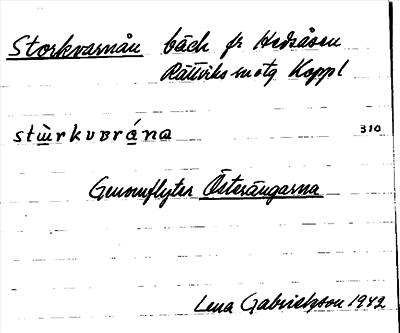 Storkvarnån bäck fr Hedåsen
Rättviks sn otg Koppl
stùrkvɐrána 310
Genomflyter Österängarna
Lena Gabrielsson 1942